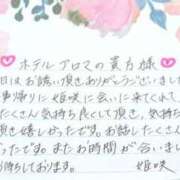 ホテルアロマの貴方様♡
日はお誘い頂きありがとうございまし
事帰りに姫咲に会いに来てくれて
たくさん気持ち良くして頂き、気
頂き嬉しかったです。お話したくさん
ったです。またお時間が合いまし
お待ちしております。 姫咲